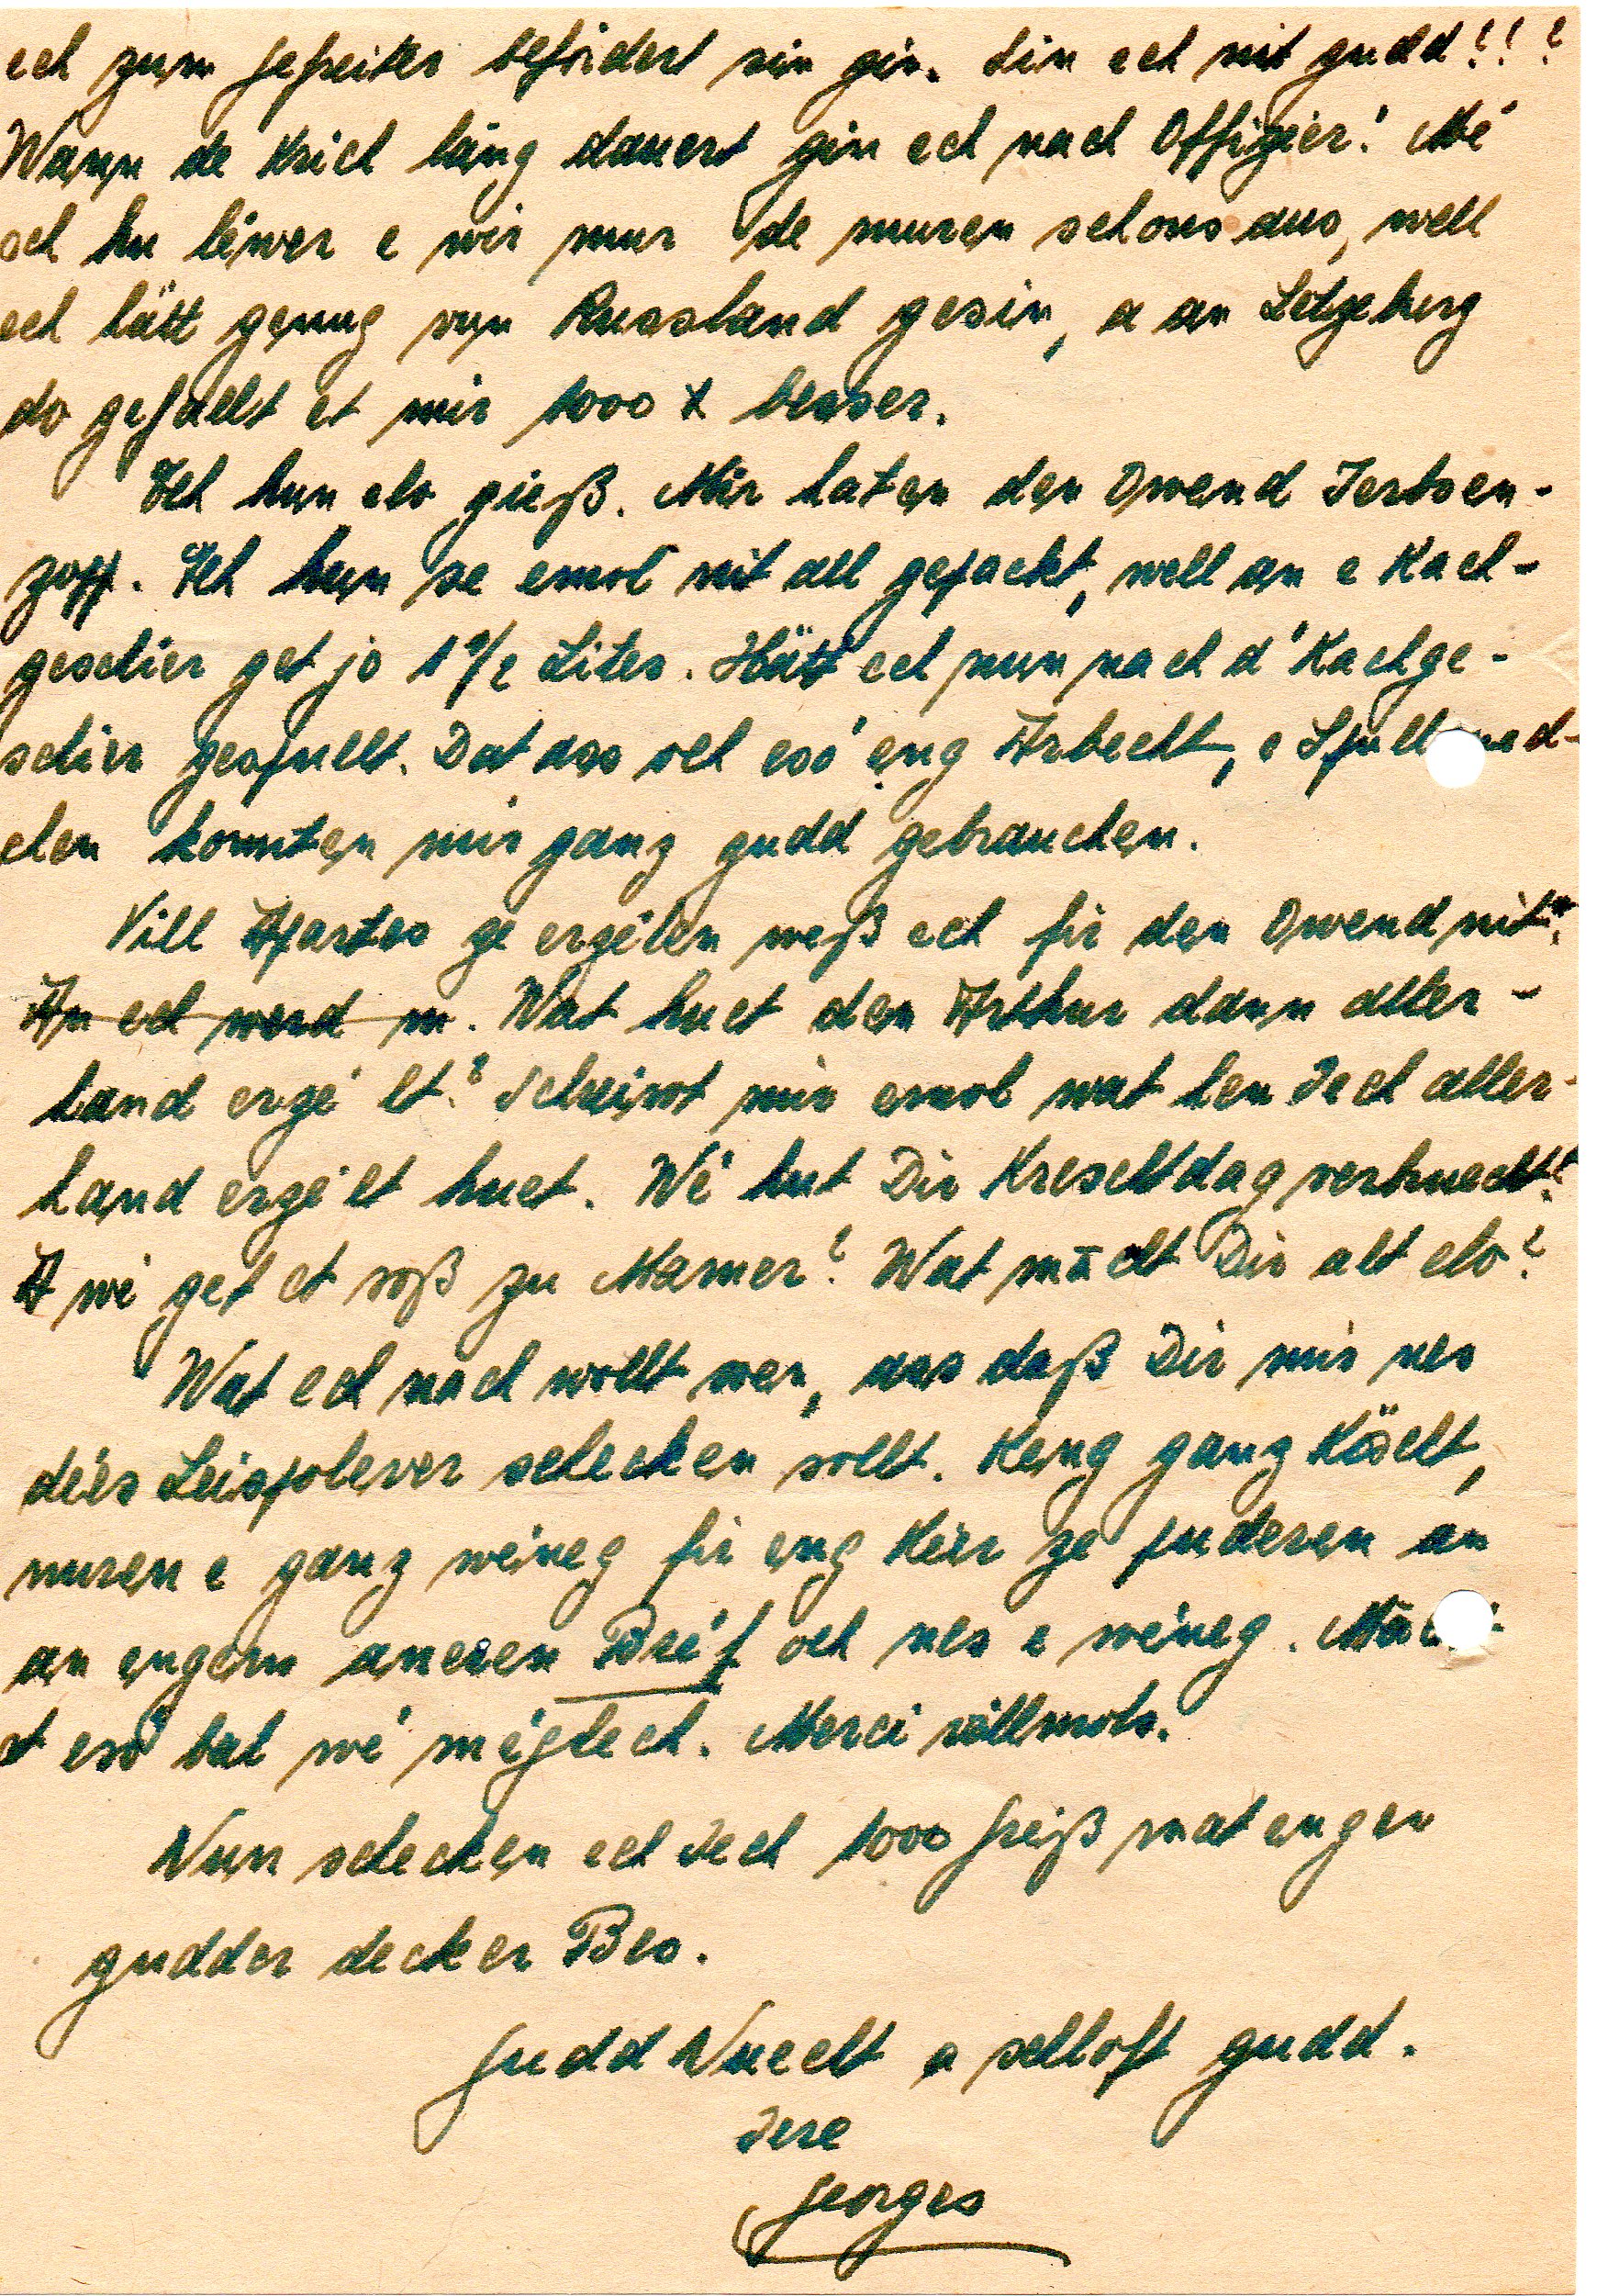 ech zum Gefreiter befördert sin gin. Sin ech nit gudd!!!
Wann de Krich läng dauert gin ech nach Offizéer! Mé
ech hu léiwer e wir mur de muren schons aus, well
ech hätt genug vun Russland gesin, a an Lëtzeburg
do gefällt et mir 1000 x besser.
Ech hun elo giess. Mir haten den Owend Ierbsen-
zopp. Ech hun se emol nit all gepackt, well an e Kach-
geschier get jo 1 1/2 Liter. Hätt ech nun nach d'Kachge-
schier gespullt. Dat ass och esó eng Arbecht, e Spull med-
chen konnten mir ganz gudd gebrauchen.
Vill Apartes ze erzélen weß ech fir den Owend nit.
An ech werd m. Wat huet den Arthur dann aller-
hand erzé lt? Schreiwt mir emol wat hen Iech aller-
hand erzélt huet. Wé hut Dir Kreschtdag verbruecht?
A wé get et soß zu Mamer? Wat mācht Dir alt elo?
Wat ech nach wollt soen, ass daß Dir mir nes
déers Leispolever schecken sollt. Keng ganz Käscht,
nuren e ganz wéineg fir eng Kéer ze puderen an
an engem aneren Bréf och nes e wéineg. Mācht
et esó bal wé méglech. Merci villmols.
Nun schecken ech Iech 1000 Greiß mat enger
gudder decker Bes.
Gudd Nuecht a schloft gudd.
Iere
Georges